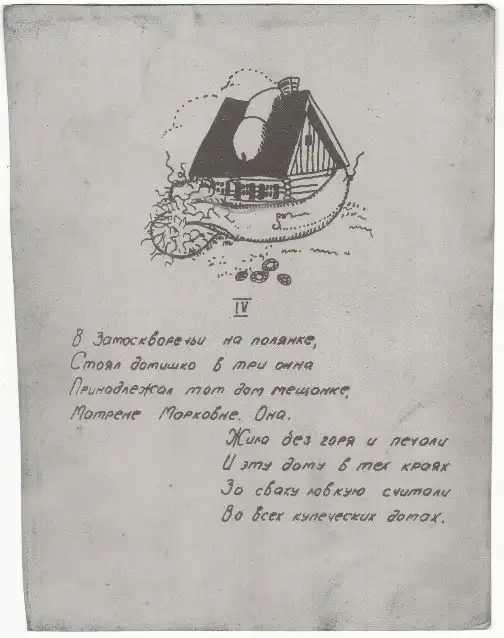 IV
В Замоскворечьи на полянке,
Стоял домишко в три окна
Принадлежал тот дом мещанке,
Матрене Марковне. Она.
Жила без горя и печали
И эту даму в тех краях
За сваху ловкую считали
Во всех купеческих домах.